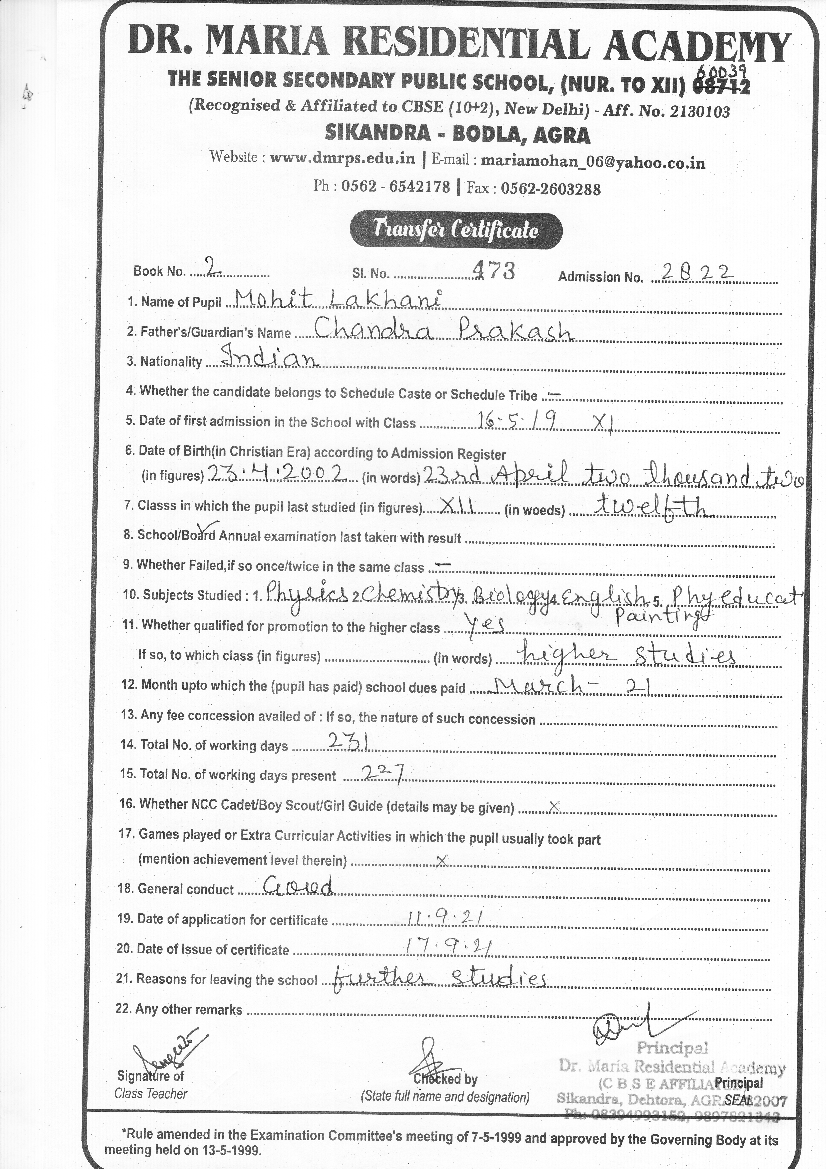 DR. MARIA RESIDENTIAL ACADEMY
THE SENIOR SECONDARY PUBLIC SCHOOL, (NUR. TO XII) 60039
08712
(Recognised & Affiliated to CBSE (10+2), New Delhi) - Aff. No. 2130103
SIKANDRA - BODLA, AGRA
Website : www.dmrps.edu.in | E-mail : mariamohan_06@yahoo.co.in
Ph : 0562 - 6542178 | Fax : 0562-2603288
Transfer Certificate
Book No. 2 Sl. No. 473 Admission No. 2822
1. Name of Pupil Mohit Lakhani
2. Father's/Guardian's Name Chandra Prakash
3. Nationality Indian
4. Whether the candidate belongs to Schedule Caste or Schedule Tribe —
5. Date of first admission in the School with Class 16-5-19 XI
6. Date of Birth(in Christian Era) according to Admission Register
(in figures) 23.4.2002 (in words) 23rd April two thousand two
7. Classs in which the pupil last studied (in figures) XII (in woeds) twelfth
8. School/Board Annual examination last taken with result
9. Whether Failed,if so once/twice in the same class —
10. Subjects Studied : 1. Physics 2 Chemistry 3 Biology 4 English 5. Phy educat
Painting
11. Whether qualified for promotion to the higher class Yes
If so, to which class (in figures) (in words) higher studies
12. Month upto which the (pupil has paid) school dues paid March - 21
13. Any fee concession availed of : If so, the nature of such concession
14. Total No. of working days 231
15. Total No. of working days present 227
16. Whether NCC Cadet/Boy Scout/Girl Guide (details may be given) X
17. Games played or Extra Curricular Activities in which the pupil usually took part
(mention achievement level therein) X
18. General conduct Good
19. Date of application for certificate 11.9.21
20. Date of Issue of certificate 17.9.21
21. Reasons for leaving the school further studies
22. Any other remarks
Principal
Dr. Maria Residential Academy
(C B S E AFFILIA
Sikandra, Dehtora, AGR 2007
Signature of
Class Teacher
Checked by
(State full name and designation)
Principal
SEAL
*Rule amended in the Examination Committee's meeting of 7-5-1999 and approved by the Governing Body at its
meeting held on 13-5-1999.